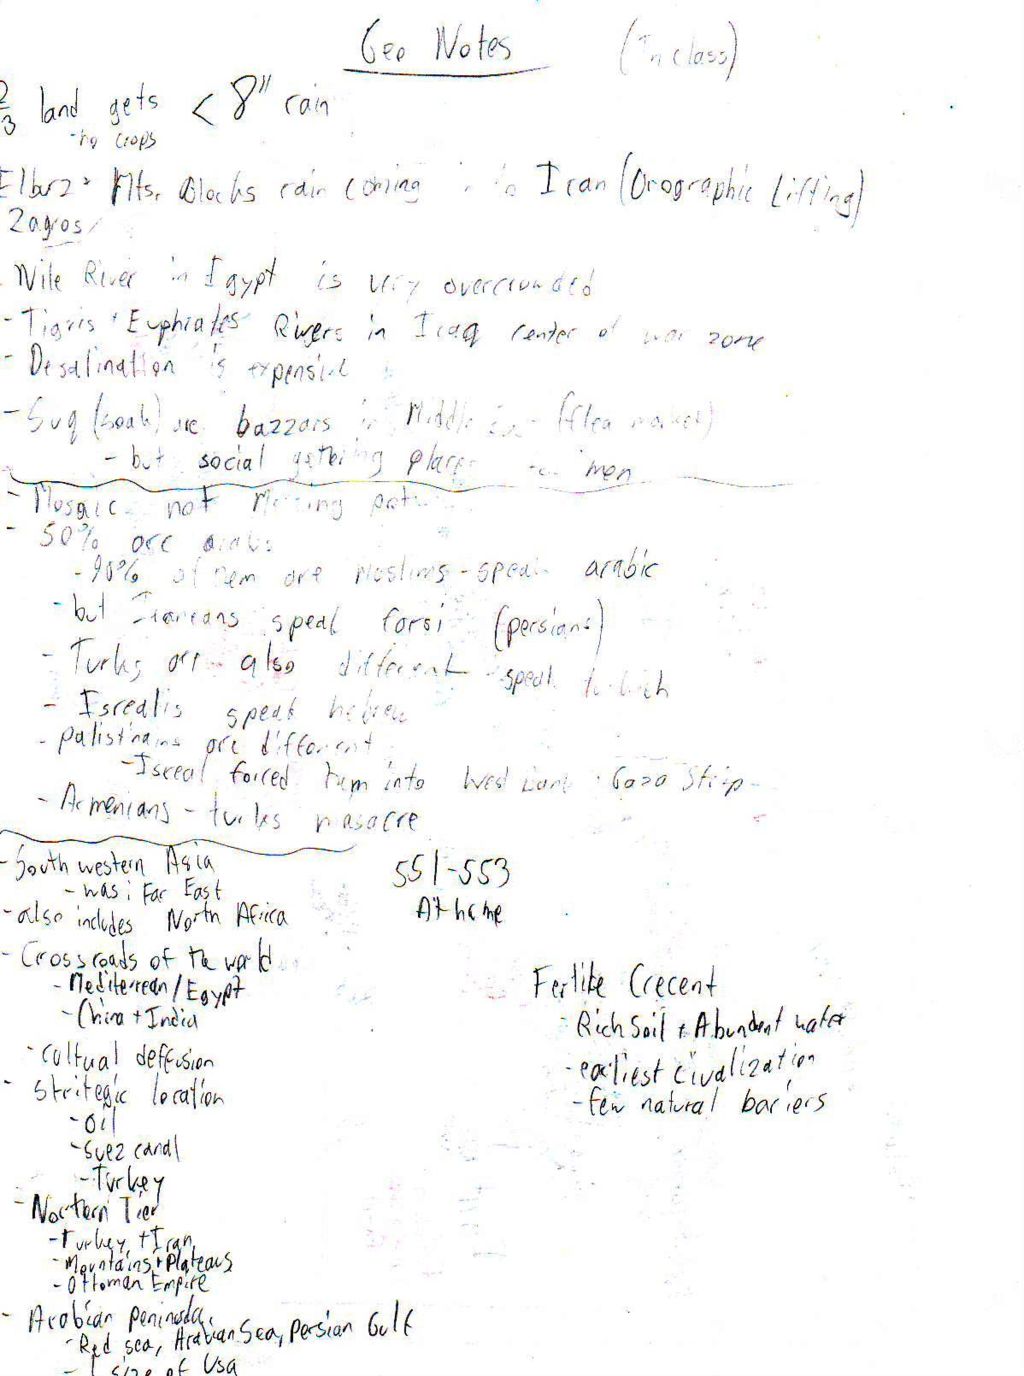 Geo Notes (In class)
2/3 land gets < 8" rain
- no crops
Elburz + Mts. Blocks rain coming into Iran (Orographic Lifting)
Zagros
Nile River in Egypt is very overcrowded
- Tigris + Euphrates Rivers in Iraq center of war zone
- Desalination is expensive
- Suq (soak) are bazzars in Middle (flea market)
- but social gathering places for men
- Mosaic not Melting pot
- 50% are arabs
- 90% of them are Moslims - speak arabic
- but Iraneans speak farsi (persians)
- Turks are also different - speak turkish
- Isrealis speak hebrew
- palistinains are different
- Isreal forced them into West Bank + Gaza Strip
- Armenians - turks masacre
- South western Asia
- was: Far East
- also includes North Africa
- Crossroads of the world
- Mediterrean/Egypt
- China + India
- cultual deffusion
- stritegic location
- Oil
- Suez canal
- Turkey
- Northern Tier
- Turkey, + Iran,
- Mountains + Plateaus
- Ottoman Empire
- Arabian peninsula,
- Red sea, Arabian Sea, persian Gulf
- size of Usa
551-553
At home
Fertile Crecent
- Rich Soil + Abundent water
- earliest civalization
- few natural bariers